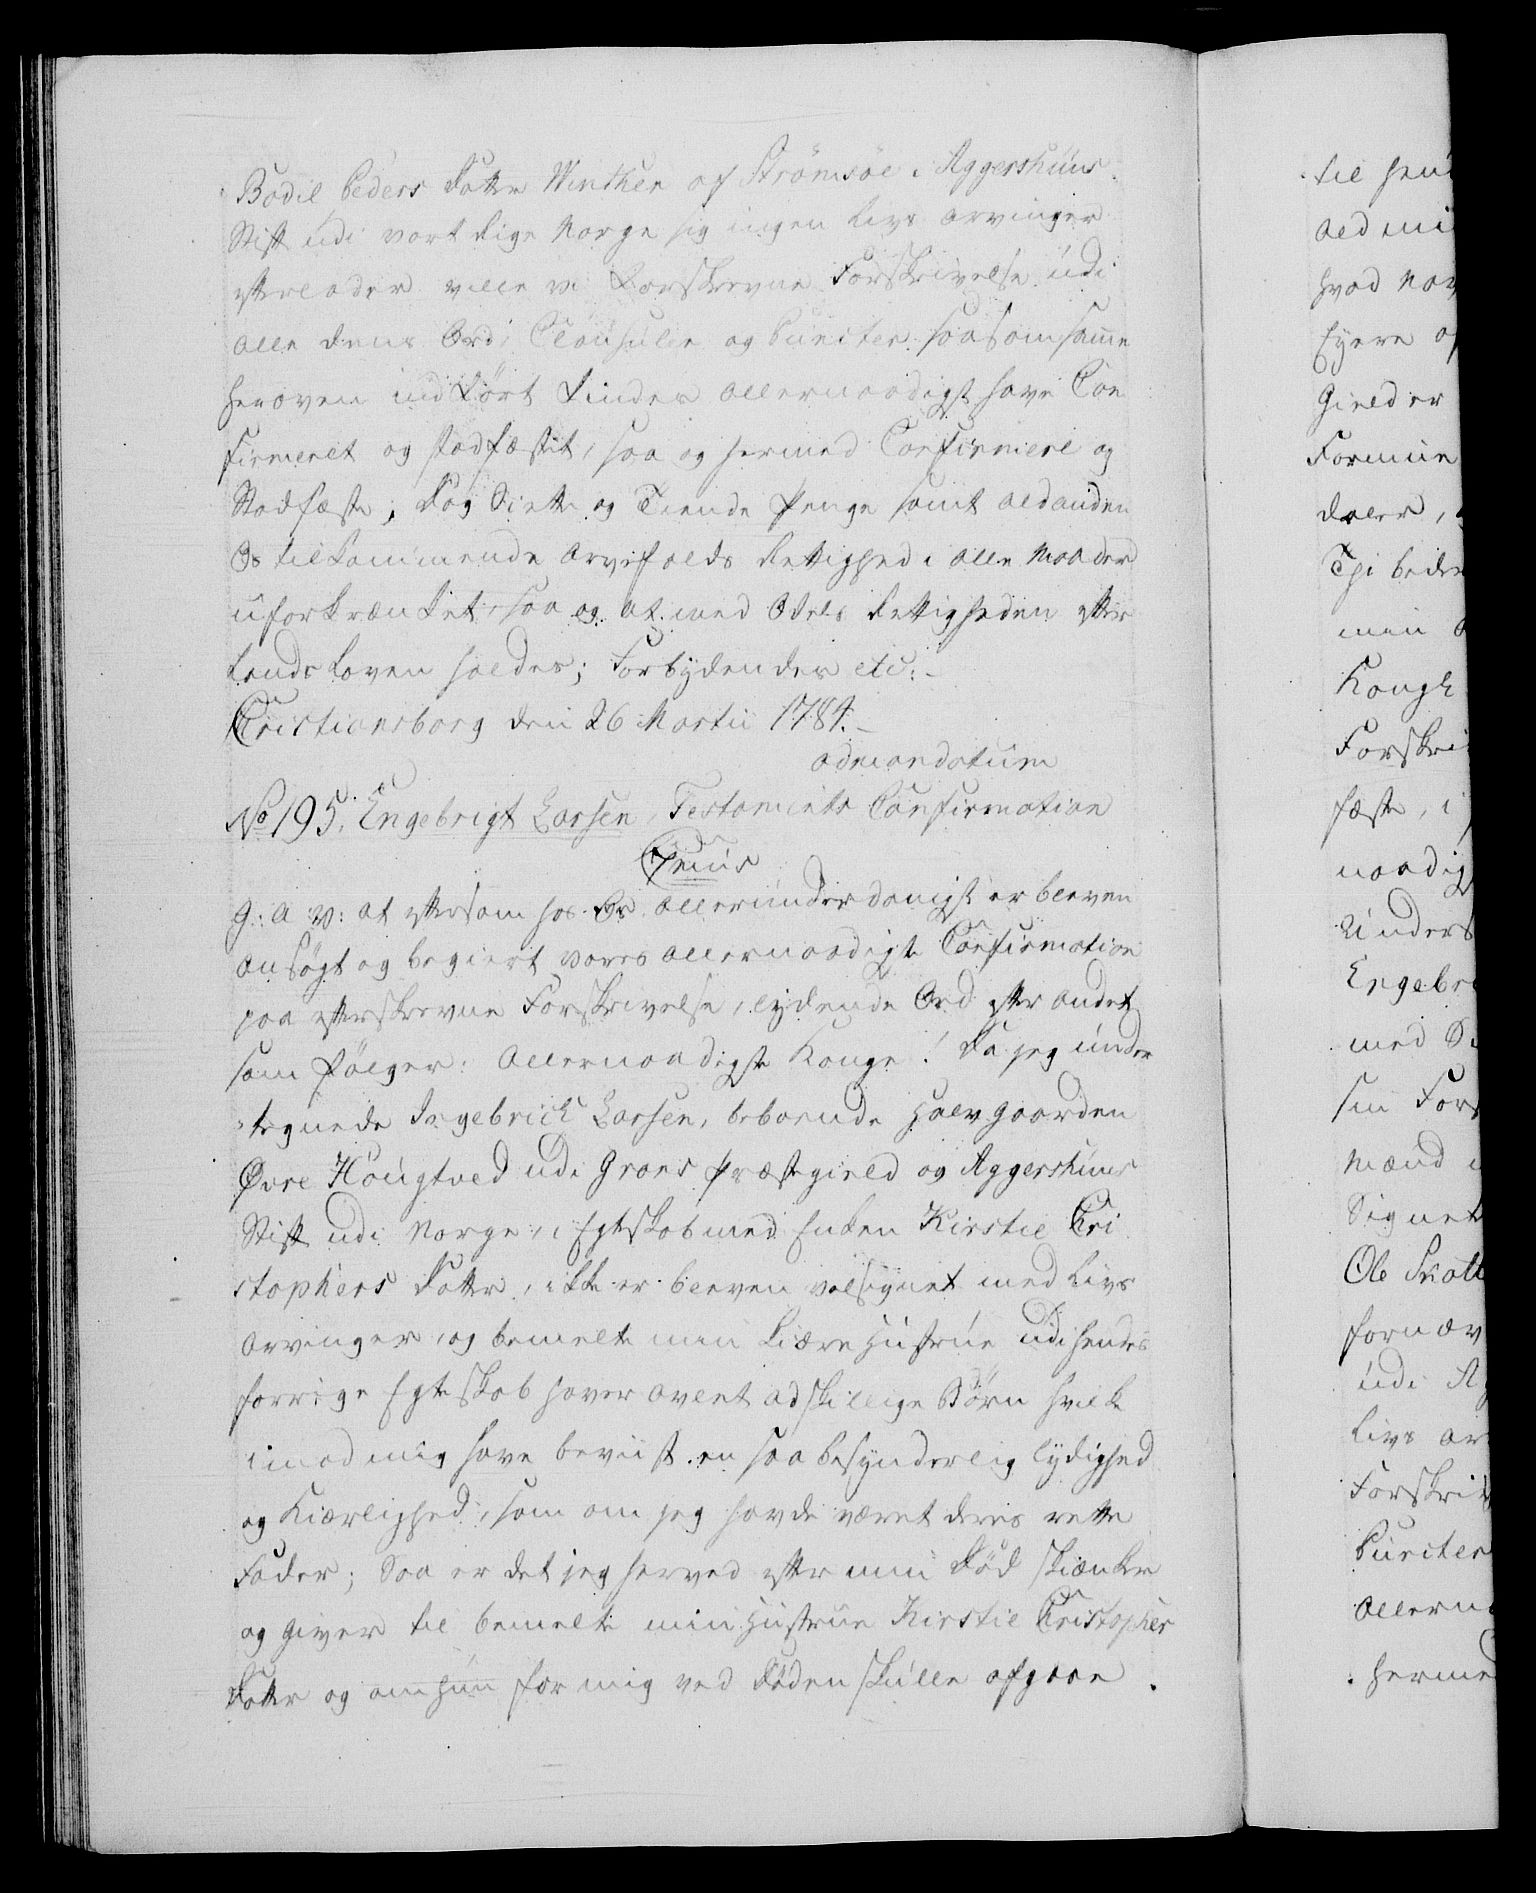 Bodil Peders Datter Winther af Strømsøe i Aggershuus
Stift udi vort Rige Norge sig ingen Livs Arvinger
efterlader ville vi Forskrevne Forskrivelse udi
alle dens Ord, Clausuler og Puncter saasom samme
heroven indført findes allernaadigst have Con
firmeret og stadfæstet, saa og hermed Confirmere og
Stadfæste, Dog Siette og Tiende Penge samt ald anden
Os tilkommende Arvefalds Rettighed i alle Maader
uforkrænket, saa og at med Odels Rettigheden efter
Lands Loven holdes; Forbydendes etc:
Cristiansborg den 26 Martii 1784.
ad mandatum
No 195, Engebrigt Larsen, Testaments Confirmation
G: A: V: at eftersom hos Os allerunderdanigst er bleven
ansøgt og begiert vores allernaadigste Confirmation
paa efterskrevne Forskrivelse, lydende Ord efter andet
som følger: Allernaadigste Konge! Da jeg under
tegnede Ingebrich Larsen, beboende Halvgaarden
Øvre Hougtved udi Grans Præstegield og Aggershuus
Stift udi Norge, i Egteskab med Enken Kirstie Cri
stophers Datter, ikke er bleven velsignet med Livs
Arvinger, og bemelte min kiære Hustrue udi hendes
forrige Egteskab haver avlet adskillige Børn hvilke
imod mig have beviist en saa besynderlig lydighed
og Kiærlighed, som om jeg havde været deres rette
Fader; Saa er det jeg herved efter min Død skienker
og giver til bemelte min Hustrue Kirstie Christopher
Datter og om hun for mig ved Døden skulle afgaae
til hen
hvad
Gield er
Formue
daler,
Thi beder
min
Kongl
Forskri
fæste, i
naadig
Unders
Engebr
med
sin For
Mænd
Signet
Ole
fornæv
udi A
Livs ar
Forskriv
Puncter
allern
hermed